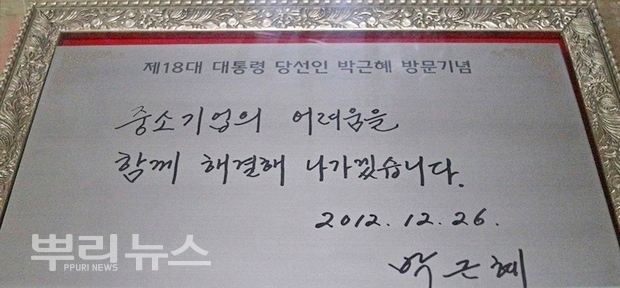 제18대 대통령 당선인 박근혜 방문기념
중소기업의 어려움을
함께 해결해 나가겠습니다.
2012. 12. 26.
박근혜
뿌리뉴스
PPURI NEWS